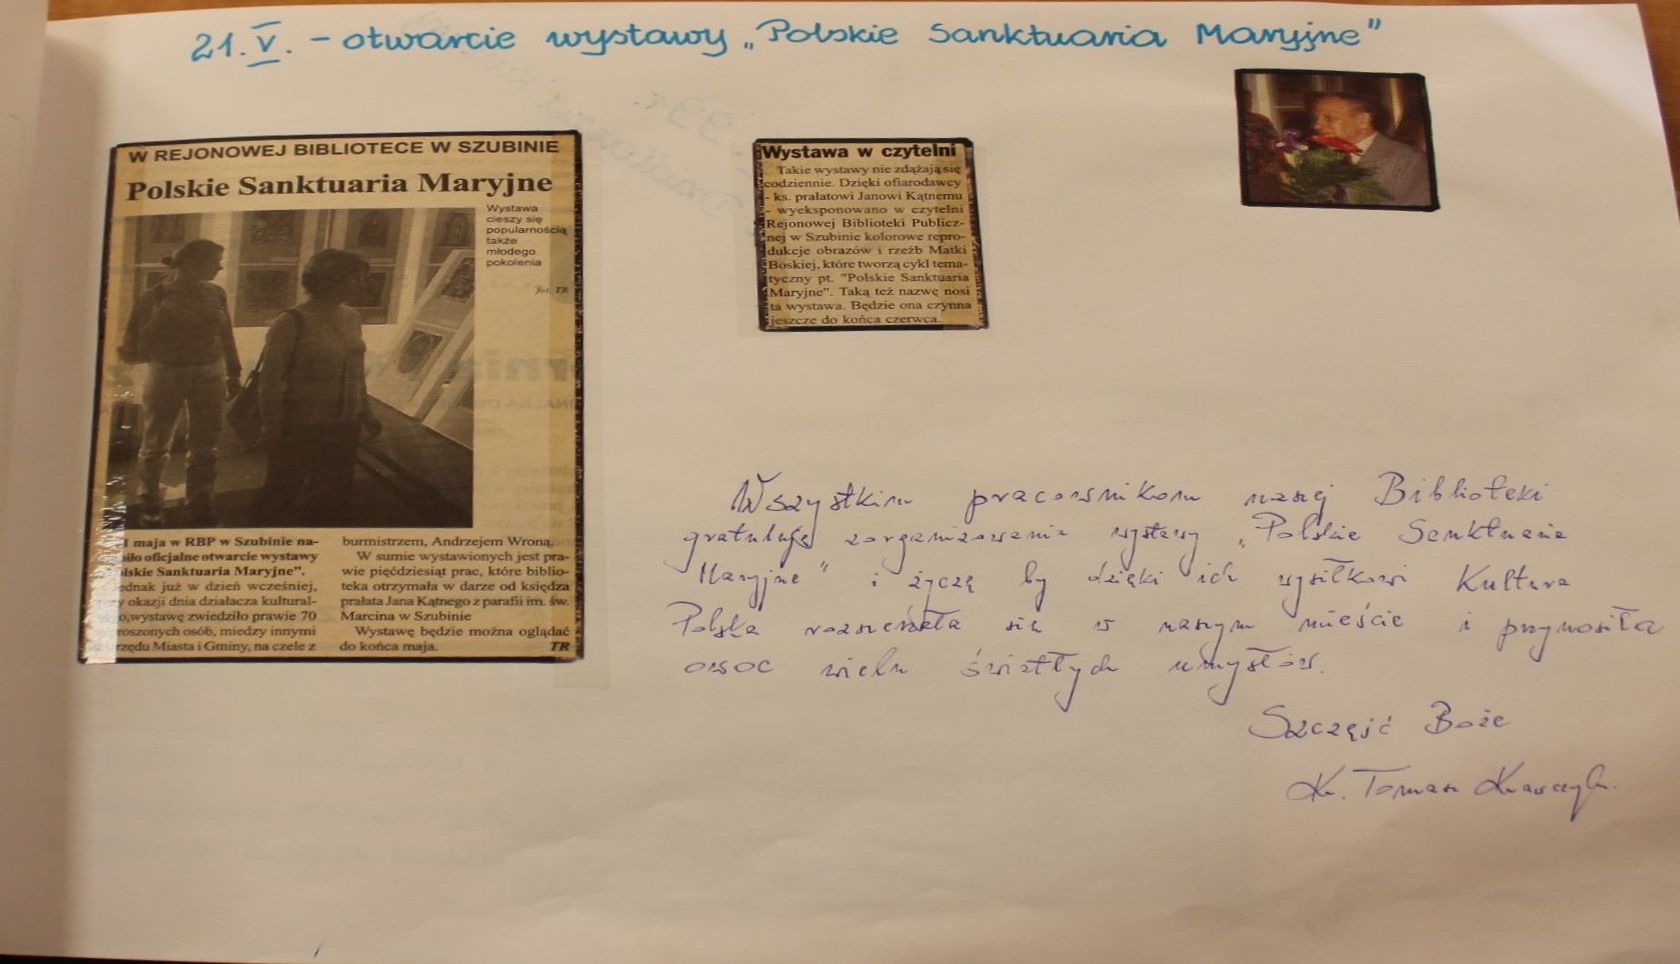 21. V. – otwarcie wystawy „Polskie Sanktuaria Maryjne”
W REJONOWEJ BIBLIOTECE W SZUBINIE
Polskie Sanktuaria Maryjne
Wystawa
cieszy się
popularnością
także
młodego
pokolenia
fot. TR
1 maja w RBP w Szubinie na-
iło oficjalne otwarcie wystawy
lskie Sanktuaria Maryjne”.
ednak już w dzień wcześniej,
y okazji dnia działacza kultural-
o, wystawę zwiedziło prawie 70
roszonych osób, miedzy innymi
rzędu Miasta i Gminy, na czele z
burmistrzem, Andrzejem Wroną.
W sumie wystawionych jest pra-
wie pięćdziesiąt prac, które biblio-
teka otrzymała w darze od księdza
prałata Jana Kątnego z parafii im. św.
Marcina w Szubinie
Wystawę będzie można oglądać
do końca maja. TR
Wystawa w czytelni
Takie wystawy nie zdążają się
codziennie. Dzięki ofiarodawcy
- ks. prałatowi Janowi Kątnemu
- wyeksponowano w czytelni
Rejonowej Biblioteki Publicz-
nej w Szubinie kolorowe repro-
dukcje obrazów i rzeźb Matki
Boskiej, które tworzą cykl tema-
tyczny pt. "Polskie Sanktuaria
Maryjne". Taką też nazwę nosi
ta wystawa. Będzie ona czynna
jeszcze do końca czerwca.
Wszystkim pracownikom naszej Biblioteki
gratuluję zorganizowania wystawy „Polskie Sanktuaria
Maryjne” i życzę by dzięki ich wysiłkowi Kultura
Polska rozszerzała się w naszym mieście i przynosiła
owoc wielu światłych umysłów.
Szczęść Boże
Ks. Tomasz Krawczyk.